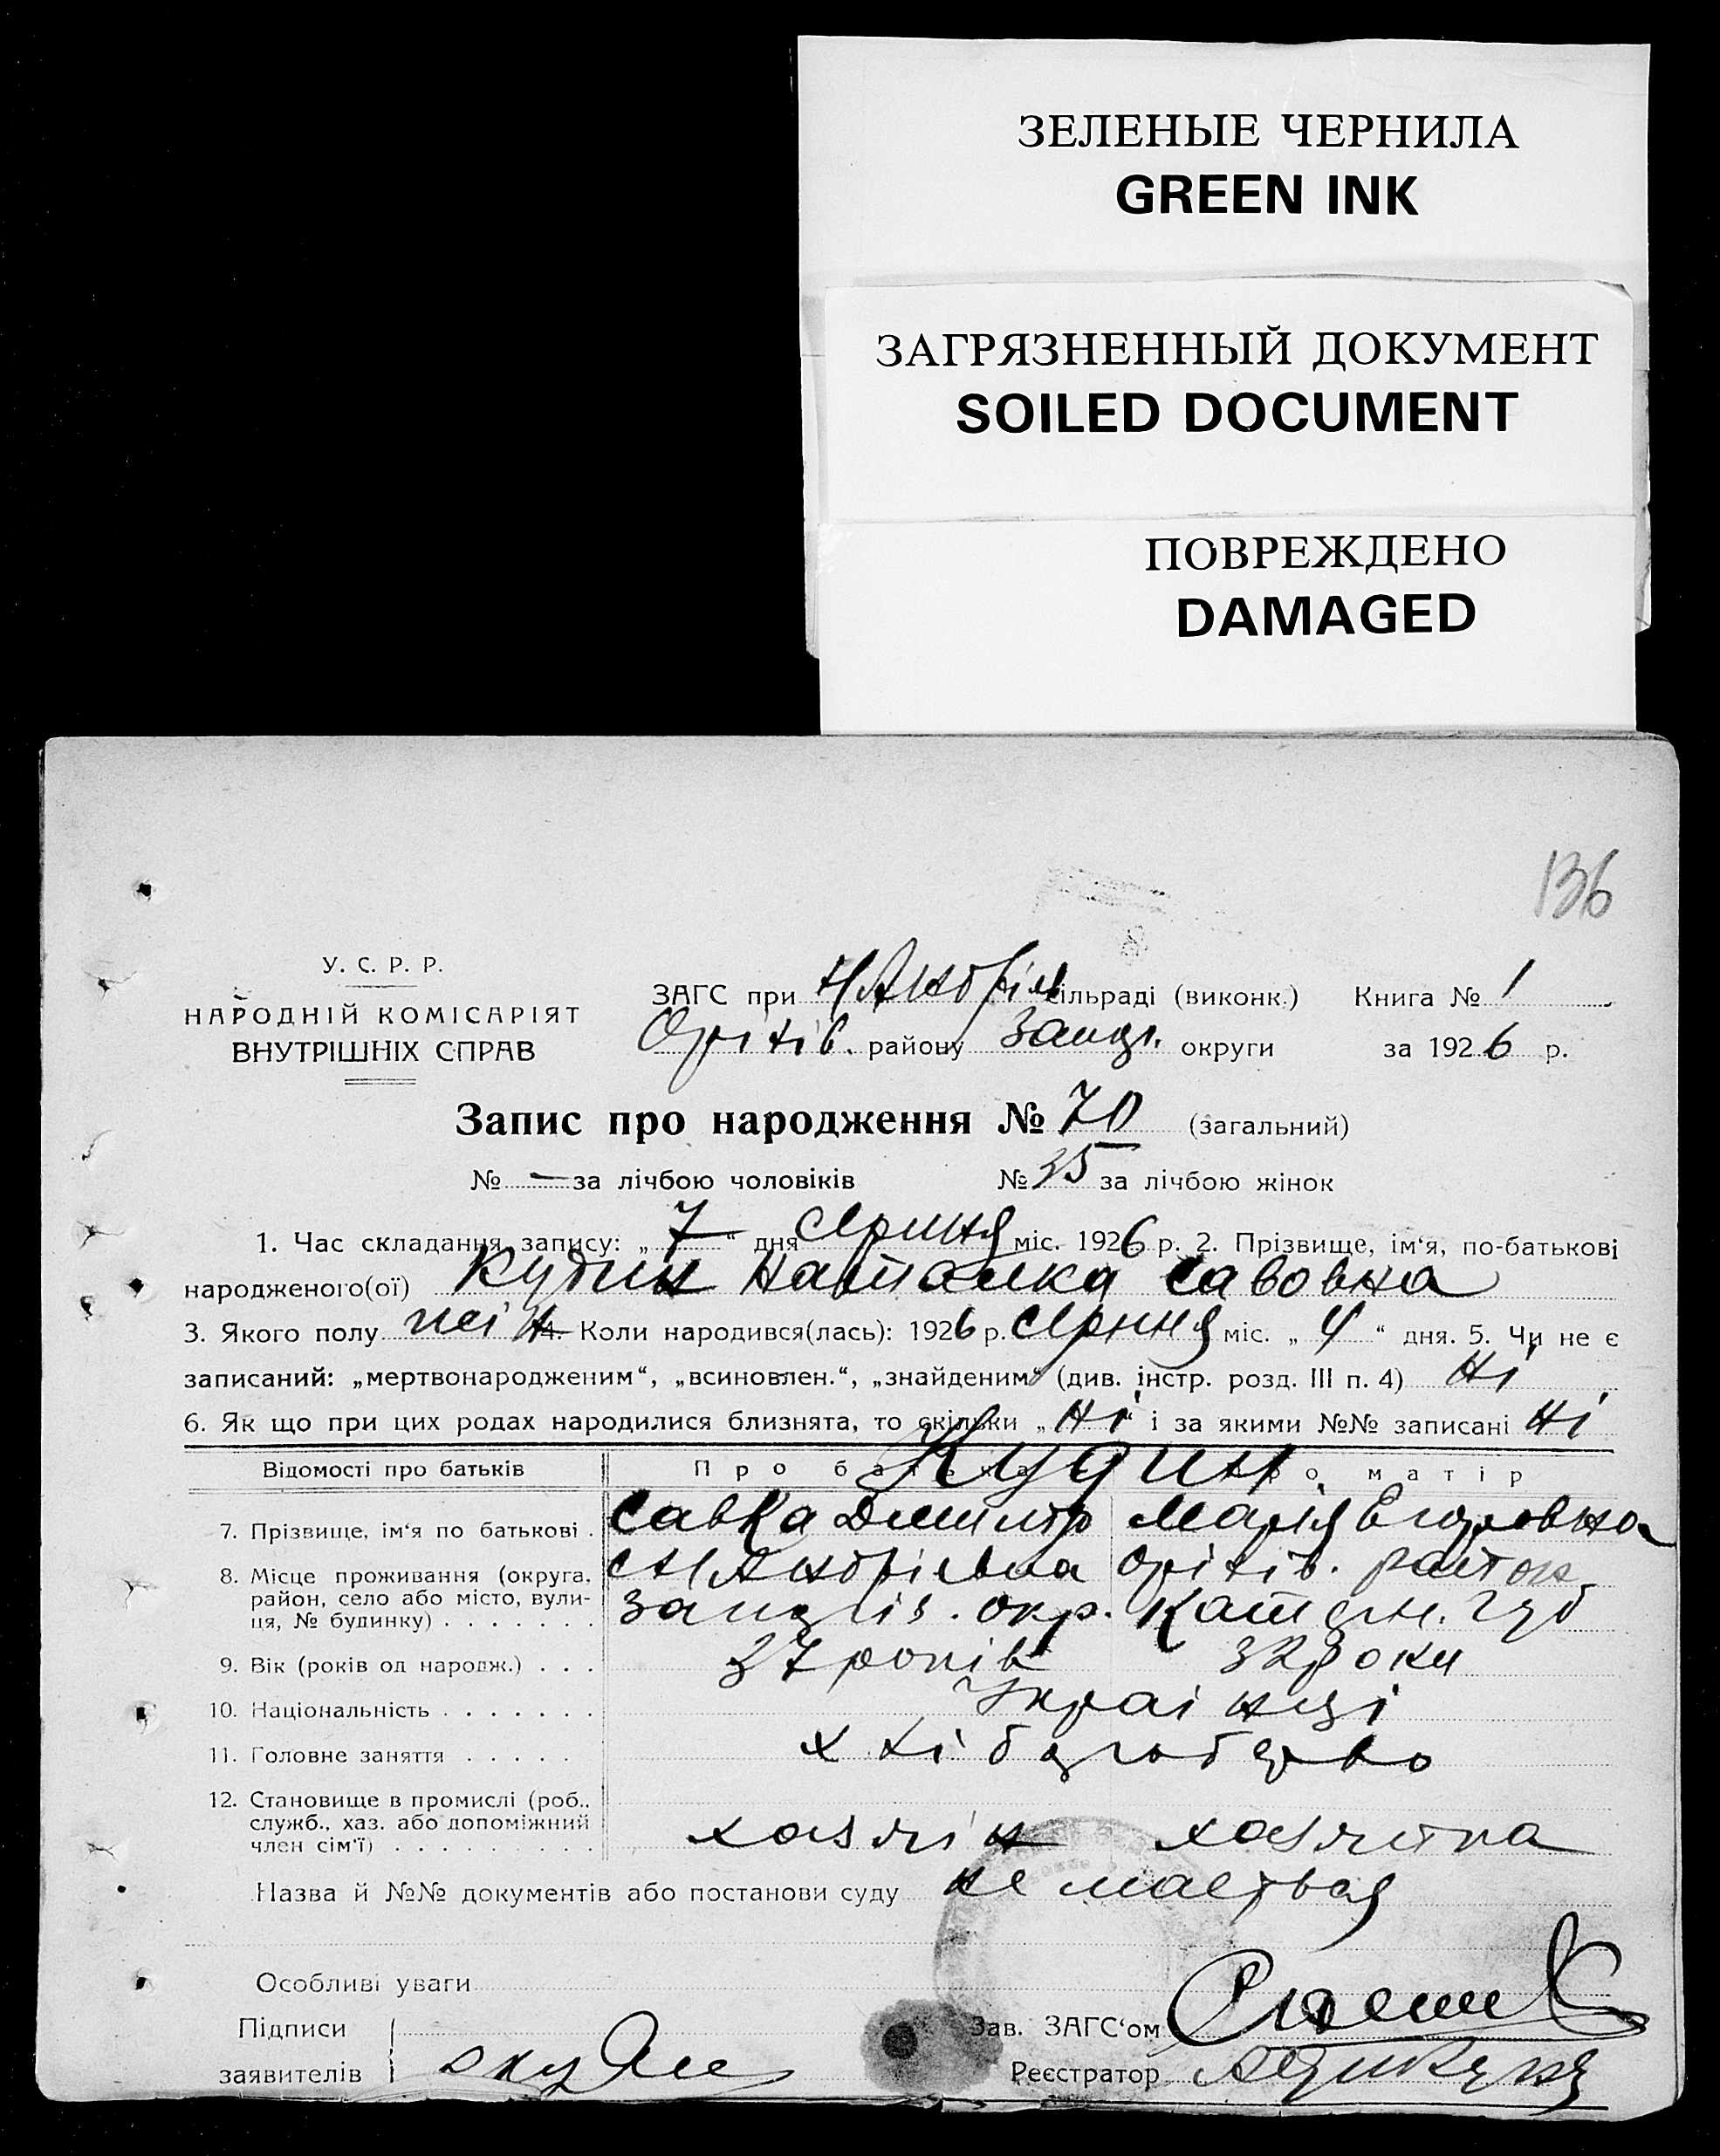 ЗЕЛЕНЫЕ ЧЕРНИЛА
GREEN INK
ЗАГРЯЗНЕННЫЙ ДОКУМЕНТ
SOILED DOCUMENT
ПОВРЕЖДЕНО
DAMAGED
136
У. С. Р. Р.
НАРОДНІЙ КОМІСАРІЯТ
ВНУТРІШНІХ СПРАВ
ЗАГС при сільраді (виконк.) Книга № 1
Оріхів. району Запор. округи за 1926 р.
Запис про народження № 70 (загальний)
№ — за лічбою чоловіків № 35 за лічбою жінок
1. Час складання запису: „ 7 “ дня Серпня міс. 1926 р. 2. Прізвище, ім'я, по-батькові
народженого(ої) Наталка Савовна
3. Якого полу жін 4. Коли народився(лась): 1926 р. Серпня міс. „ 4 “ дня. 5. Чи не є
записаний: „мертвонародженим“, „всиновлен.“, „знайденим“ (див. інстр. розд. III п. 4) Ні
6. Як що при цих родах народилися близнята, то скільки „ Ні “ і за якими №№ записані Ні
Відомості про батьків Про батька Про матір
7. Прізвище, ім'я по батькові . Савка Дмитр Марія Егоровна
8. Місце проживання (округа, Оріхів. район
район, село або місто, вули-
ця, № будинку) . . . . . . . Запоріз. окр. Катерн. Губ
9. Вік (років од народж.) . . . 37 років 32 роки
10. Національність . . . . . . . Украінці
11. Головне заняття . . . . . хліборобство
12. Становище в промислі (роб.,
служб., хаз. або допоміжний
член сім'ї) . . . . . . . . . хазяін хазяйка
Назва й №№ документів або постанови суду не маеться
Особливі уваги
Підписи
заявителів
Зав. ЗАГС'ом
Реєстратор